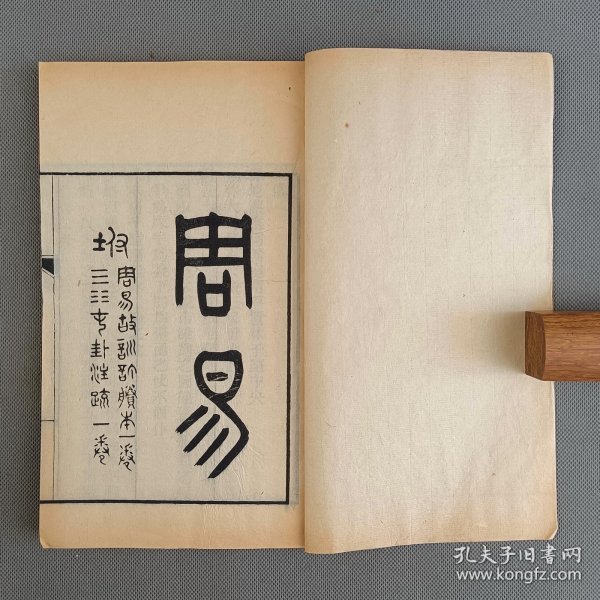 周易
坿
周易故訓訂賸本一卷
䷂屯卦注疏一卷
孔夫子旧书网
www.kongfz.com